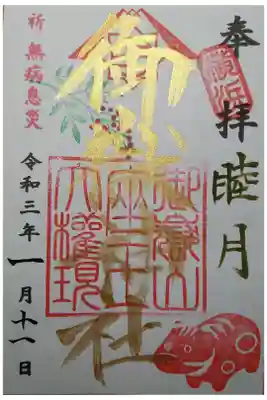 奉拝
横浜
睦月
御
社
御嶽山
大権現
祈 無病息災
令和三年一月十一日